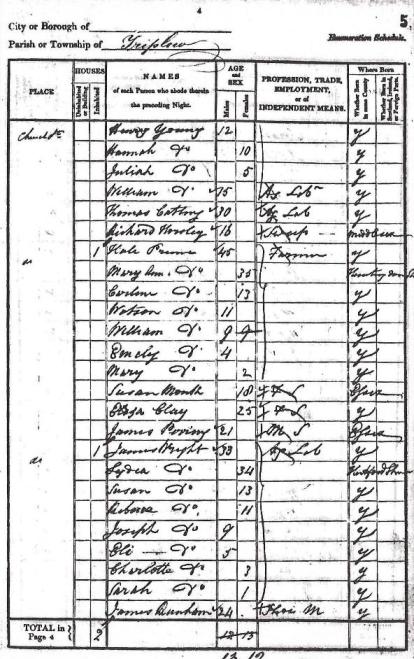 4
5
City or Borough of
Parish or Township of Triplow
Enumeration Schedule.
PLACE
HOUSES
Uninhabited or Building
Inhabited
NAMES
of each Person who abode therein
the preceding Night.
AGE
and
SEX
Males
Females
PROFESSION, TRADE,
EMPLOYMENT,
or of
INDEPENDENT MEANS.
Where Born
Whether Born in same County
Whether Born in Scotland, Ireland, or Foreign Parts.
Church St Henry Young 12 y
Hannah Do 10 y
Juliah Do 5 y
William Do 75 Ag Lab y
Thomas 30 Ag Lab y
Richard Horsley 16 Middlesex
do 1 Hale Prime 45 Farmer y
Mary Ann Do 35
Do 13 y
Watson Do 11 y
William Do 9 y
Emely Do 4 y
Mary Do 2 y
Susan 18 F S Essex
Eliza Clay 25 F S y
James 21 M S Essex
do 1 James Wright 33 Ag Lab y
Lydia Do 34
Susan Do 13 y
Do 11 y
Joseph Do 9 y
Eli Do 5 y
Charlotte Do 3 y
Sarah Do 1 y
James Dunham 24 Shoe M y
TOTAL in
Page 4
2
12 13
13 12